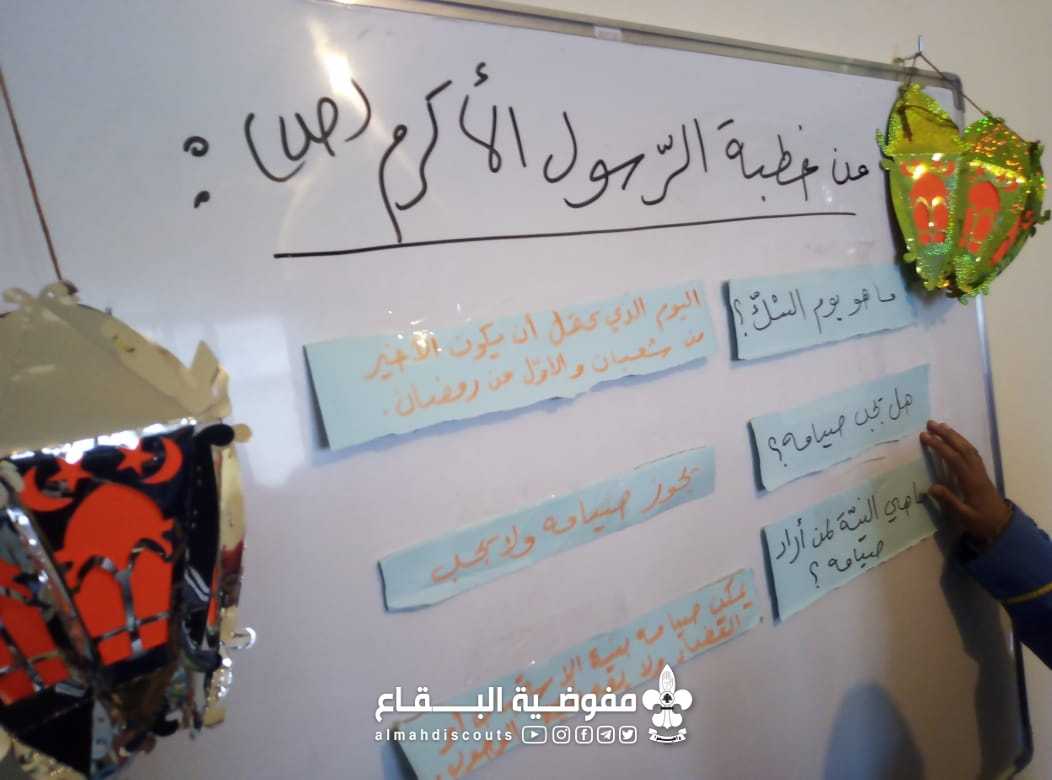 من خطبة الرّسول الأكرم (ص) :
ما هو يوم الشكّ؟
اليوم الذي يحتمل أن يكون الأخير
من شعبان والأوّل من رمضان.
هل يجب صيامه؟
يجوز صيامه ولا يجب
ما هي النيّة لمن أراد
صيامه؟
يمكن صيامه بنية
القضاء ولا
مفوضية البقاع
almahdiscouts